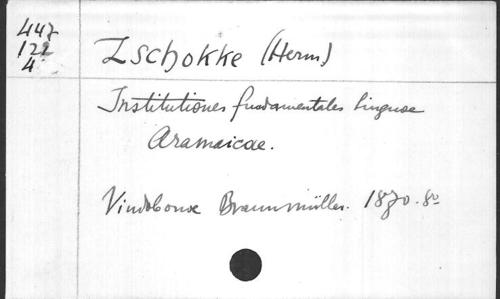 447
122
4
Zschokke (Herm)
Institutiones fundamentales linguae
Aramaicae.
Vindobonae Braumüller. 1870. 8º